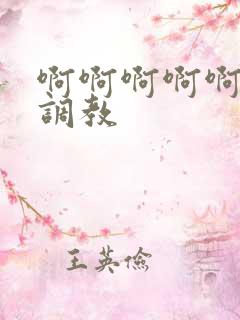 啊啊啊啊啊
調教
王英儉